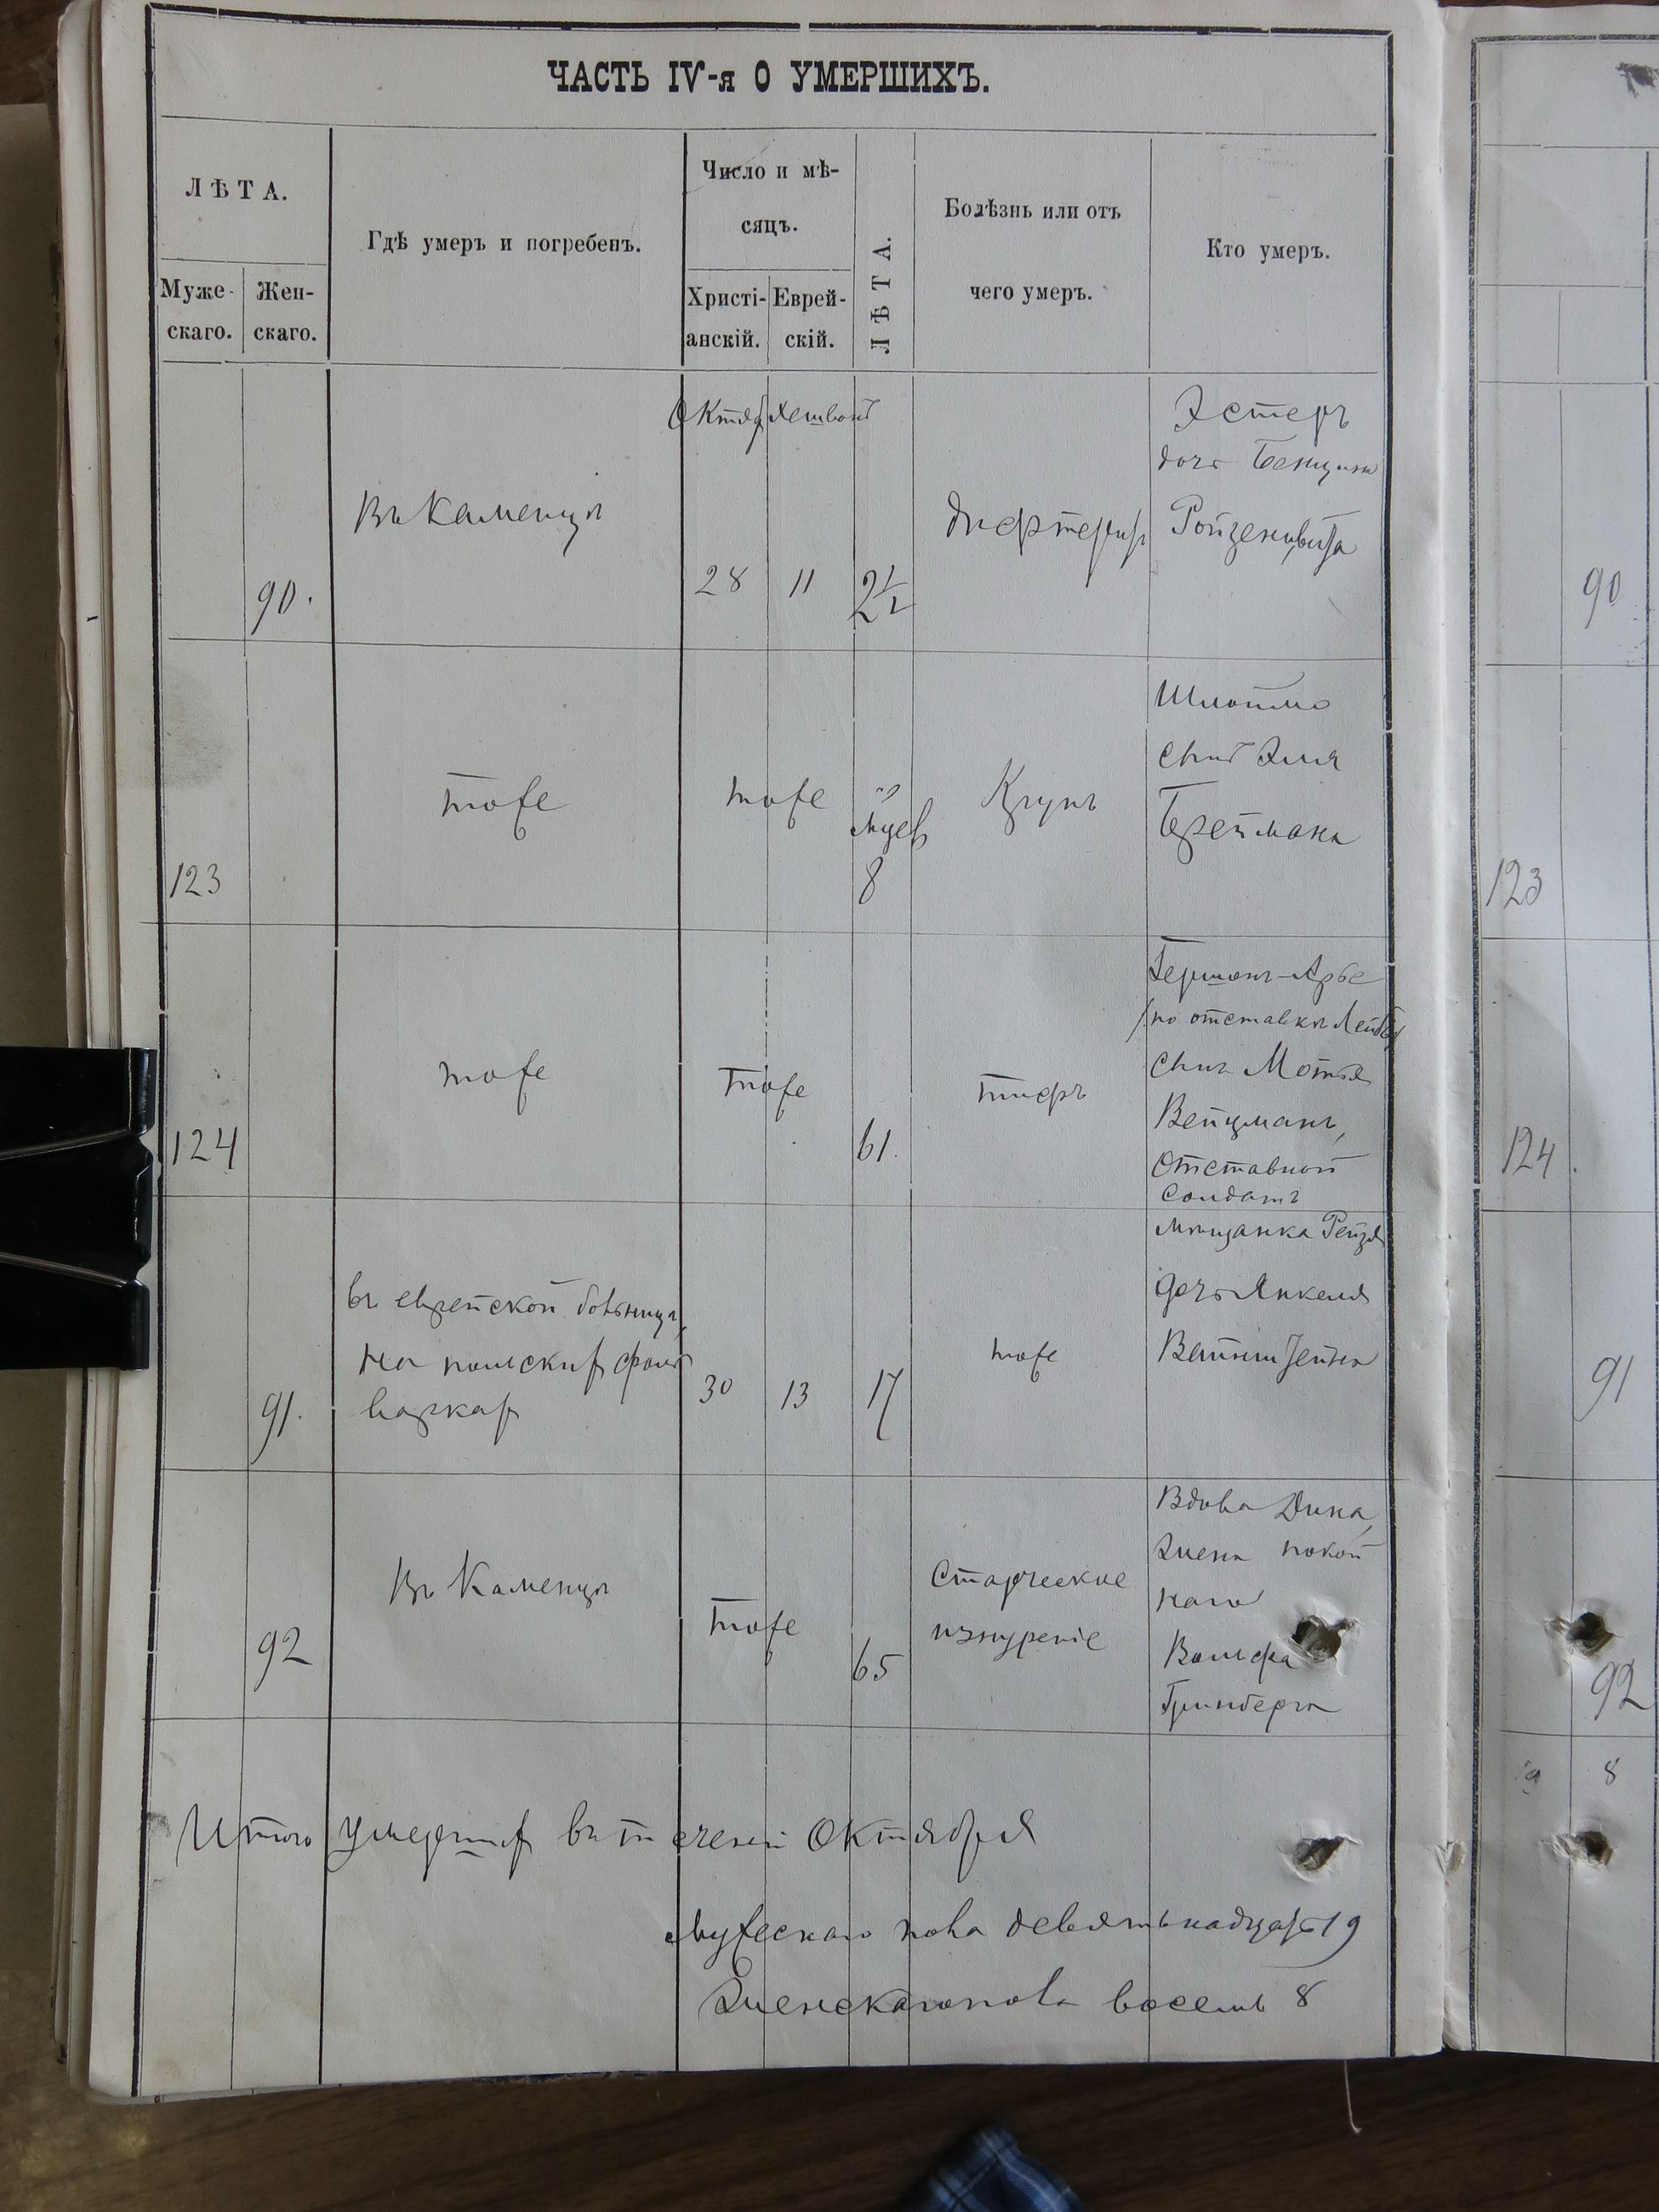 ЧАСТЬ IV-я О УМЕРШИХЪ.
ЛѢТА.
Муже-
скаго.
Жен-
скаго.
Гдѣ умеръ и погребенъ.
Число и мѣ-
сяцъ.
Христі-
анскій.
Еврей-
скій.
ЛѢТА.
Болѣзнь или отъ
чего умеръ.
Кто умеръ.
90.
Въ Каменцѣ
Октяб
Хешвонъ
28
11
2½
дифтеритъ
Эстеръ
дочь Бенциона
90
123
тоже
тоже
мцев
8
Крупъ
сынъ Эля
Бреймана
123
124
тоже
тоже
61.
тифъ
Гершонъ-Арье
/по отставкѣ Лейба/
сынъ Мотья
Вейцманъ,
отставной
солдатъ
124.
91.
въ еврейской больницѣ,
на польскихъ фоль
варкахъ
30
13
17
тоже
мѣщанка Рейзя
дочь Янкеля
91
92
Въ Каменцѣ
тоже
65
Старческое
изнуреніе
Вдова Дина,
жена покой
наго
Вольфа
Гринберга
92
8
Итого умершихъ въ теченіи Октября
мужескаго пола девятьнадцать 19
женскаго пола восемь 8